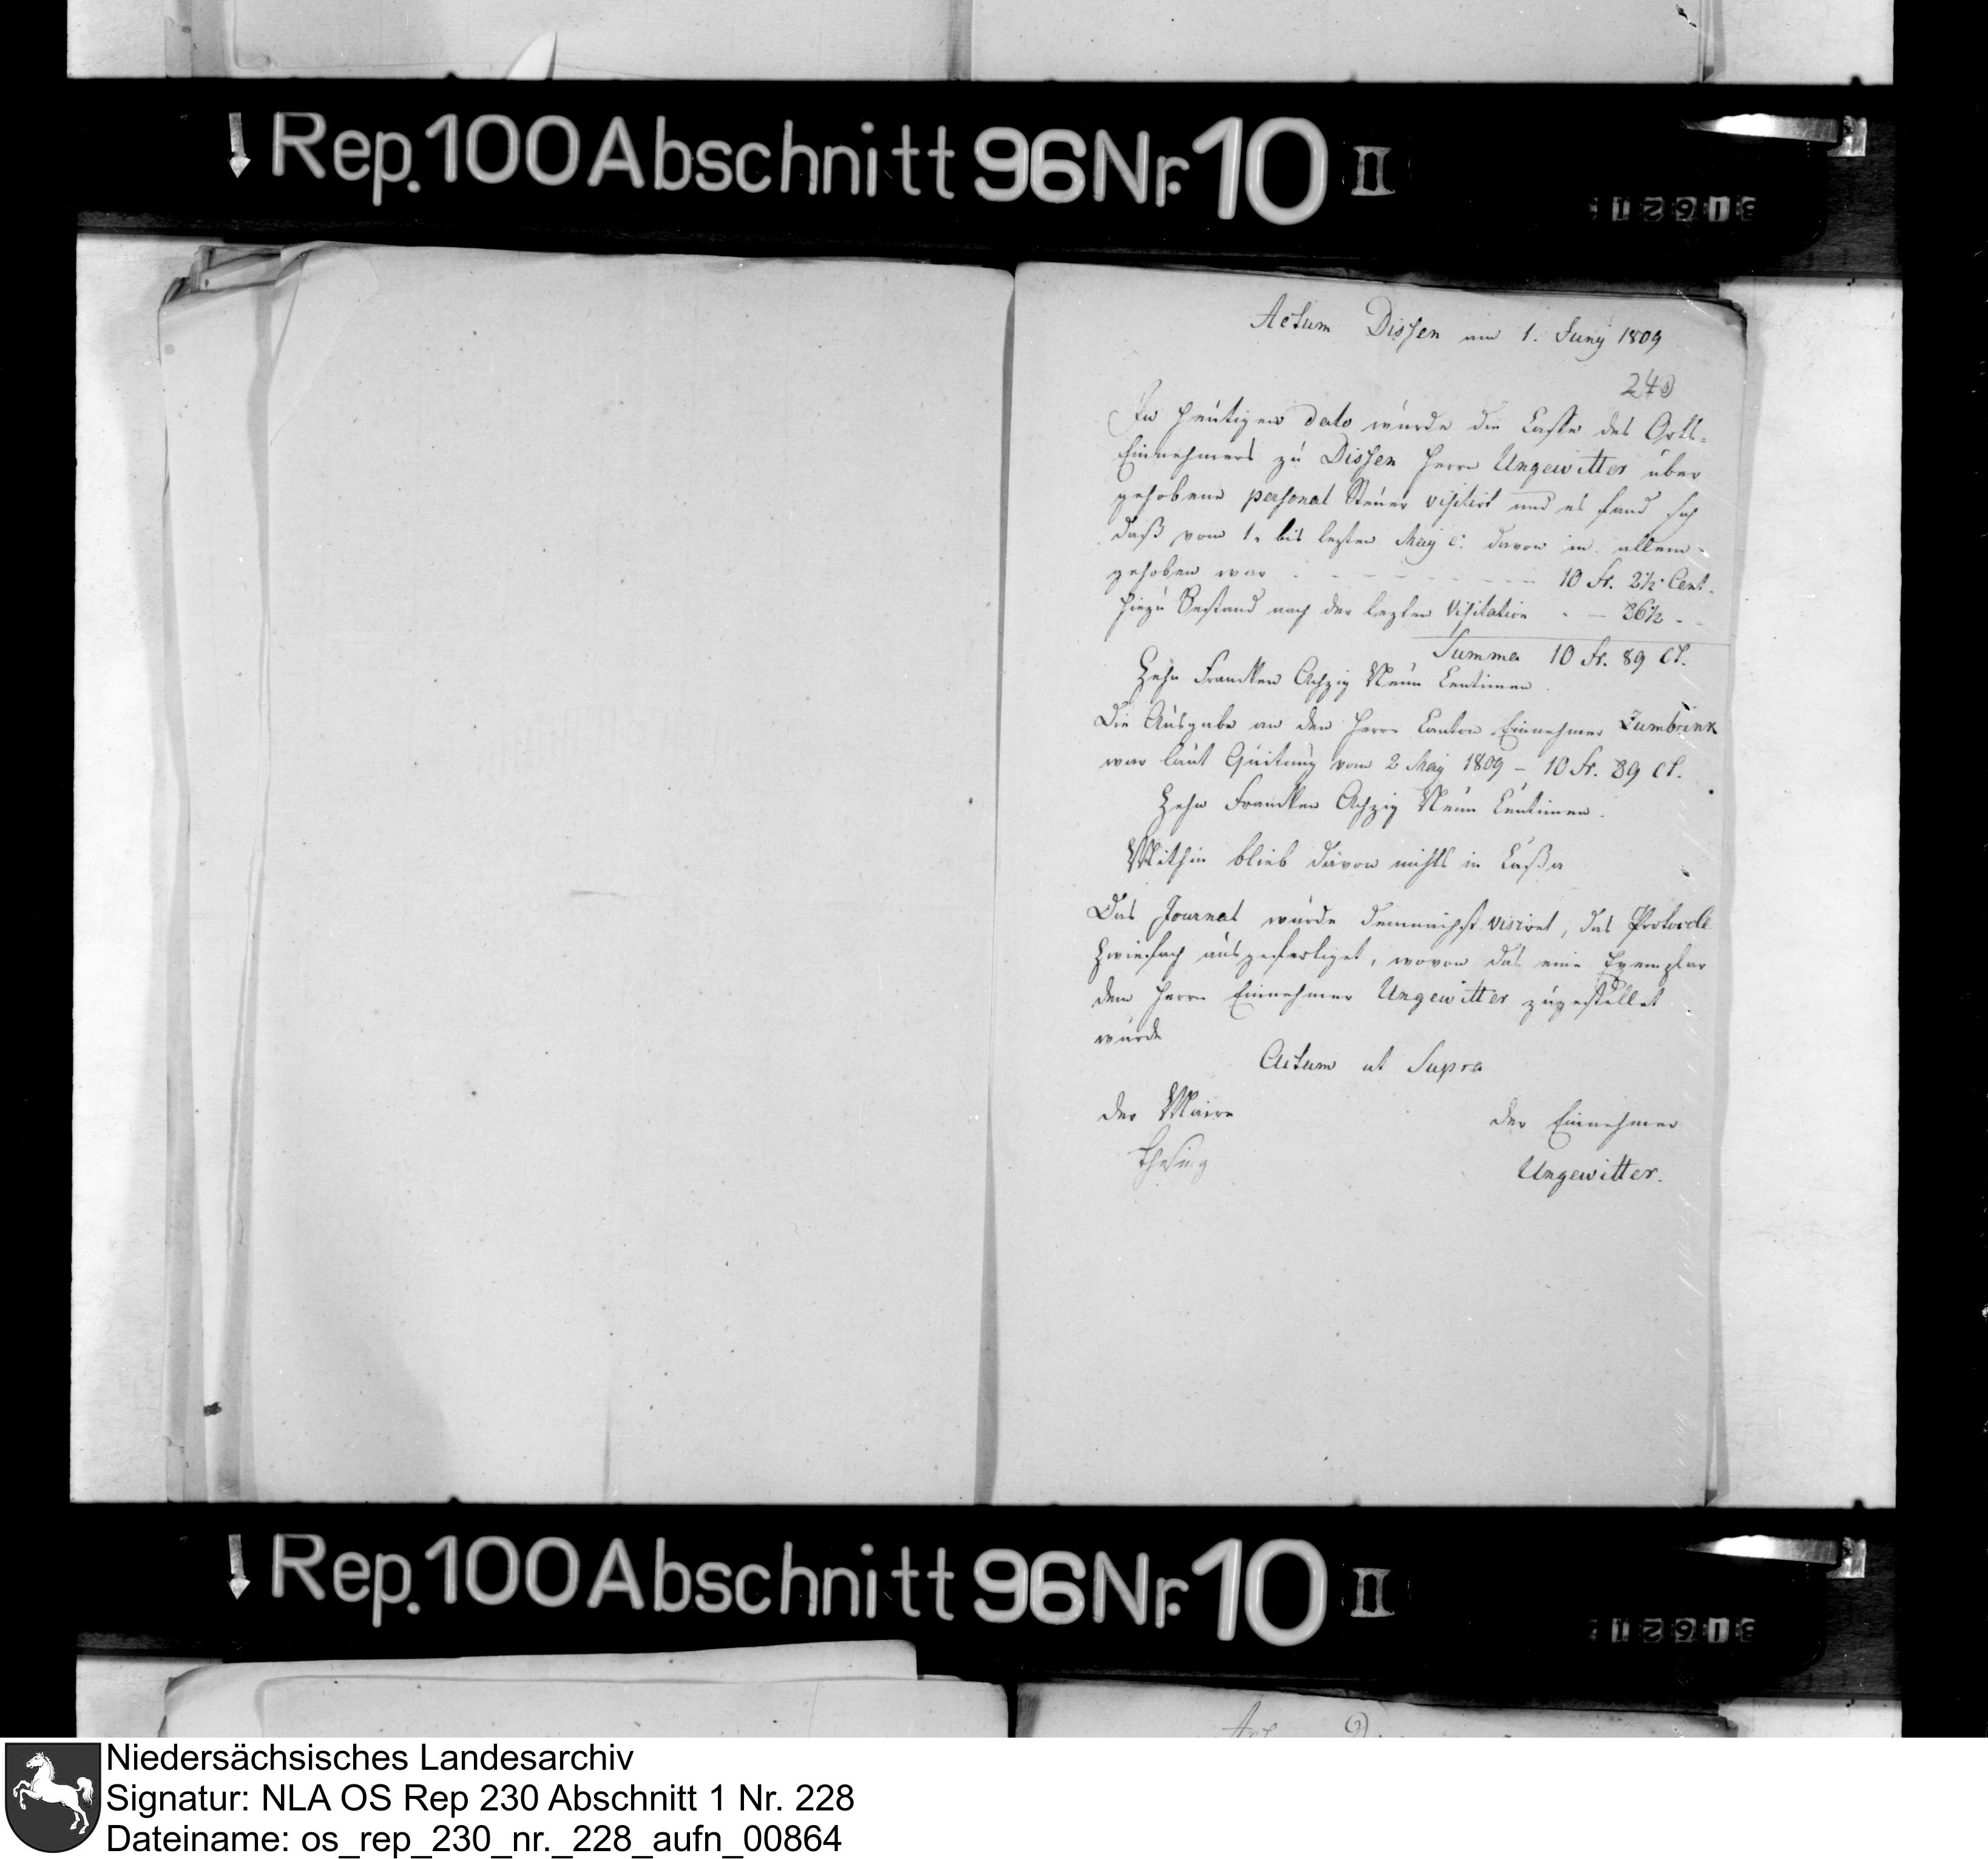 Rep. 100 Abschnitt 96 Nr. 10 II
Actum Dissen am 1. Juny 1809
240
In heutigen dato wurde die Casse des Orts-
Einnehmers zu Dissen Herrn Ungewitter über
gehobene personal Steuer visitirt und es fand sich
daß vom 1. bis lezten May c. davon in allem
gehoben war - - - - - - - 10 Fr. 2½ Cent.
hiezu Bestand nach der lezten Visitation - - 86½ -
Summa 10 Fr. 89 Ct.
Zehn Francken Achzig Neun Centimen
Die Ausgabe an den Herrn Canton Einnehmer Zumbrink
war laut Quitung vom 2 May 1809 - 10 Fr. 89 Ct.
Zehn Francken Achzig Neun Centimen.
Mithin blieb davon nichts in Cassa
Das Journal wurde demnächst visiret, das Protocoll
Zwiefach ausgefertiget, wovon das eine Exemplar
dem Herrn Einnehmer Ungewitter zugestellet
wurde
Actum ut Supra
der Maire
der Einnehmer
Ungewitter.
Rep. 100 Abschnitt 96 Nr. 10 II
Niedersächsisches Landesarchiv
Signatur: NLA OS Rep 230 Abschnitt 1 Nr. 228
Dateiname: os_rep_230_nr._228_aufn_00864